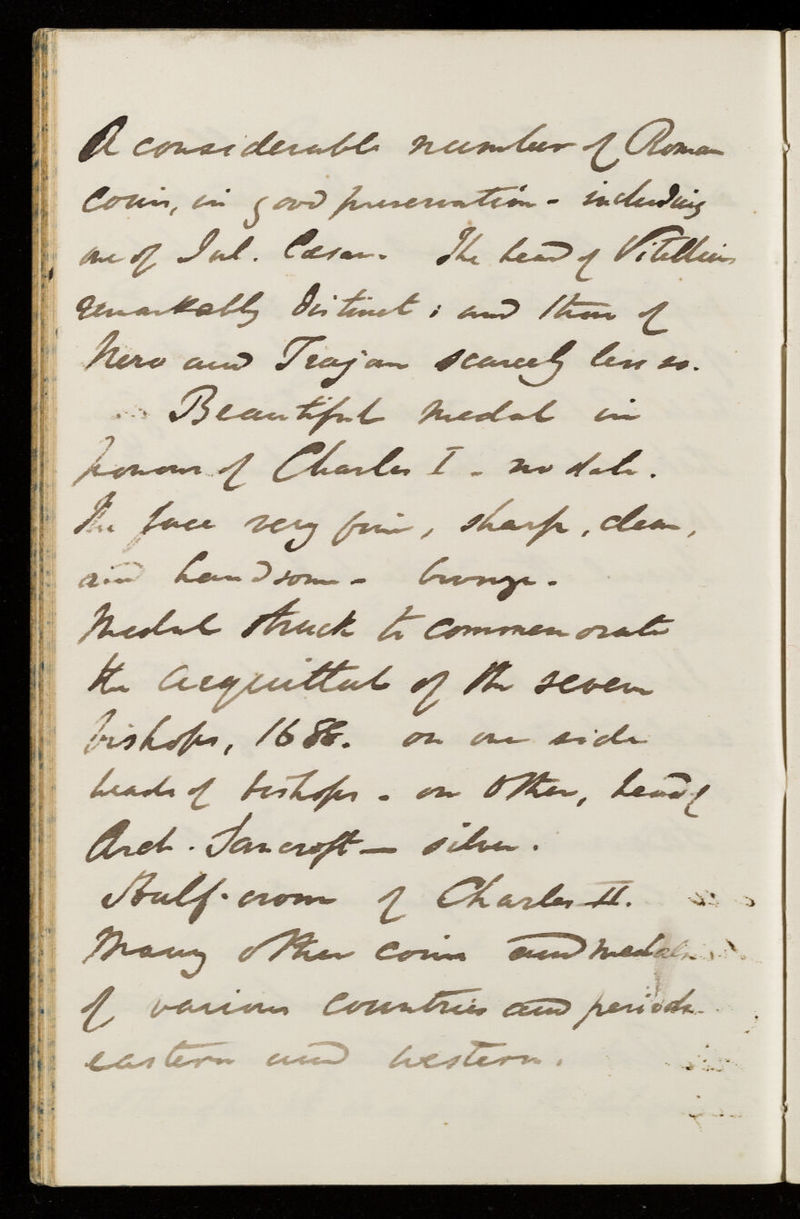 A considerable number of Roman
Coins, in good preservation - including
one of Jul. Cæsar. The head of Vitellius
remarkably distinct; and those of
Nero and Trajan scarcely less so.
Beautiful medal in
honour of Charles I - no date.
The face very fine, sharp, clear,
and handsome - bronze.
Medal struck to commemorate
the acquittal of the seven
bishops, 1688. on one side
heads of bishops - on other, head of
Arch. Sancroft — silver.
Half-crown of Charles II.
Many other coins and medals
of various countries and periods
eastern and western.